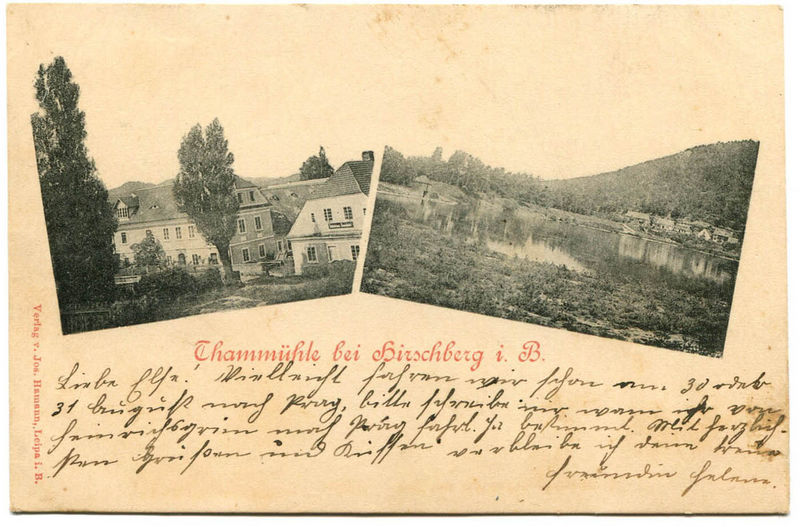 Thammühle bei Hirschberg i. B.
Verlag v. Jos. Hamann, Leipa i. B.
Liebe Else! Vielleicht fahren wir schon am 30 oder
31 August nach Prag, bitte schreibe mir wann ihr von
Heinrichsgrün nach Prag fahrt. Ja bestimmt. Mit herzlich-
sten Grüßen und Küssen verbleibe ich deine treue
Freundin Helene.